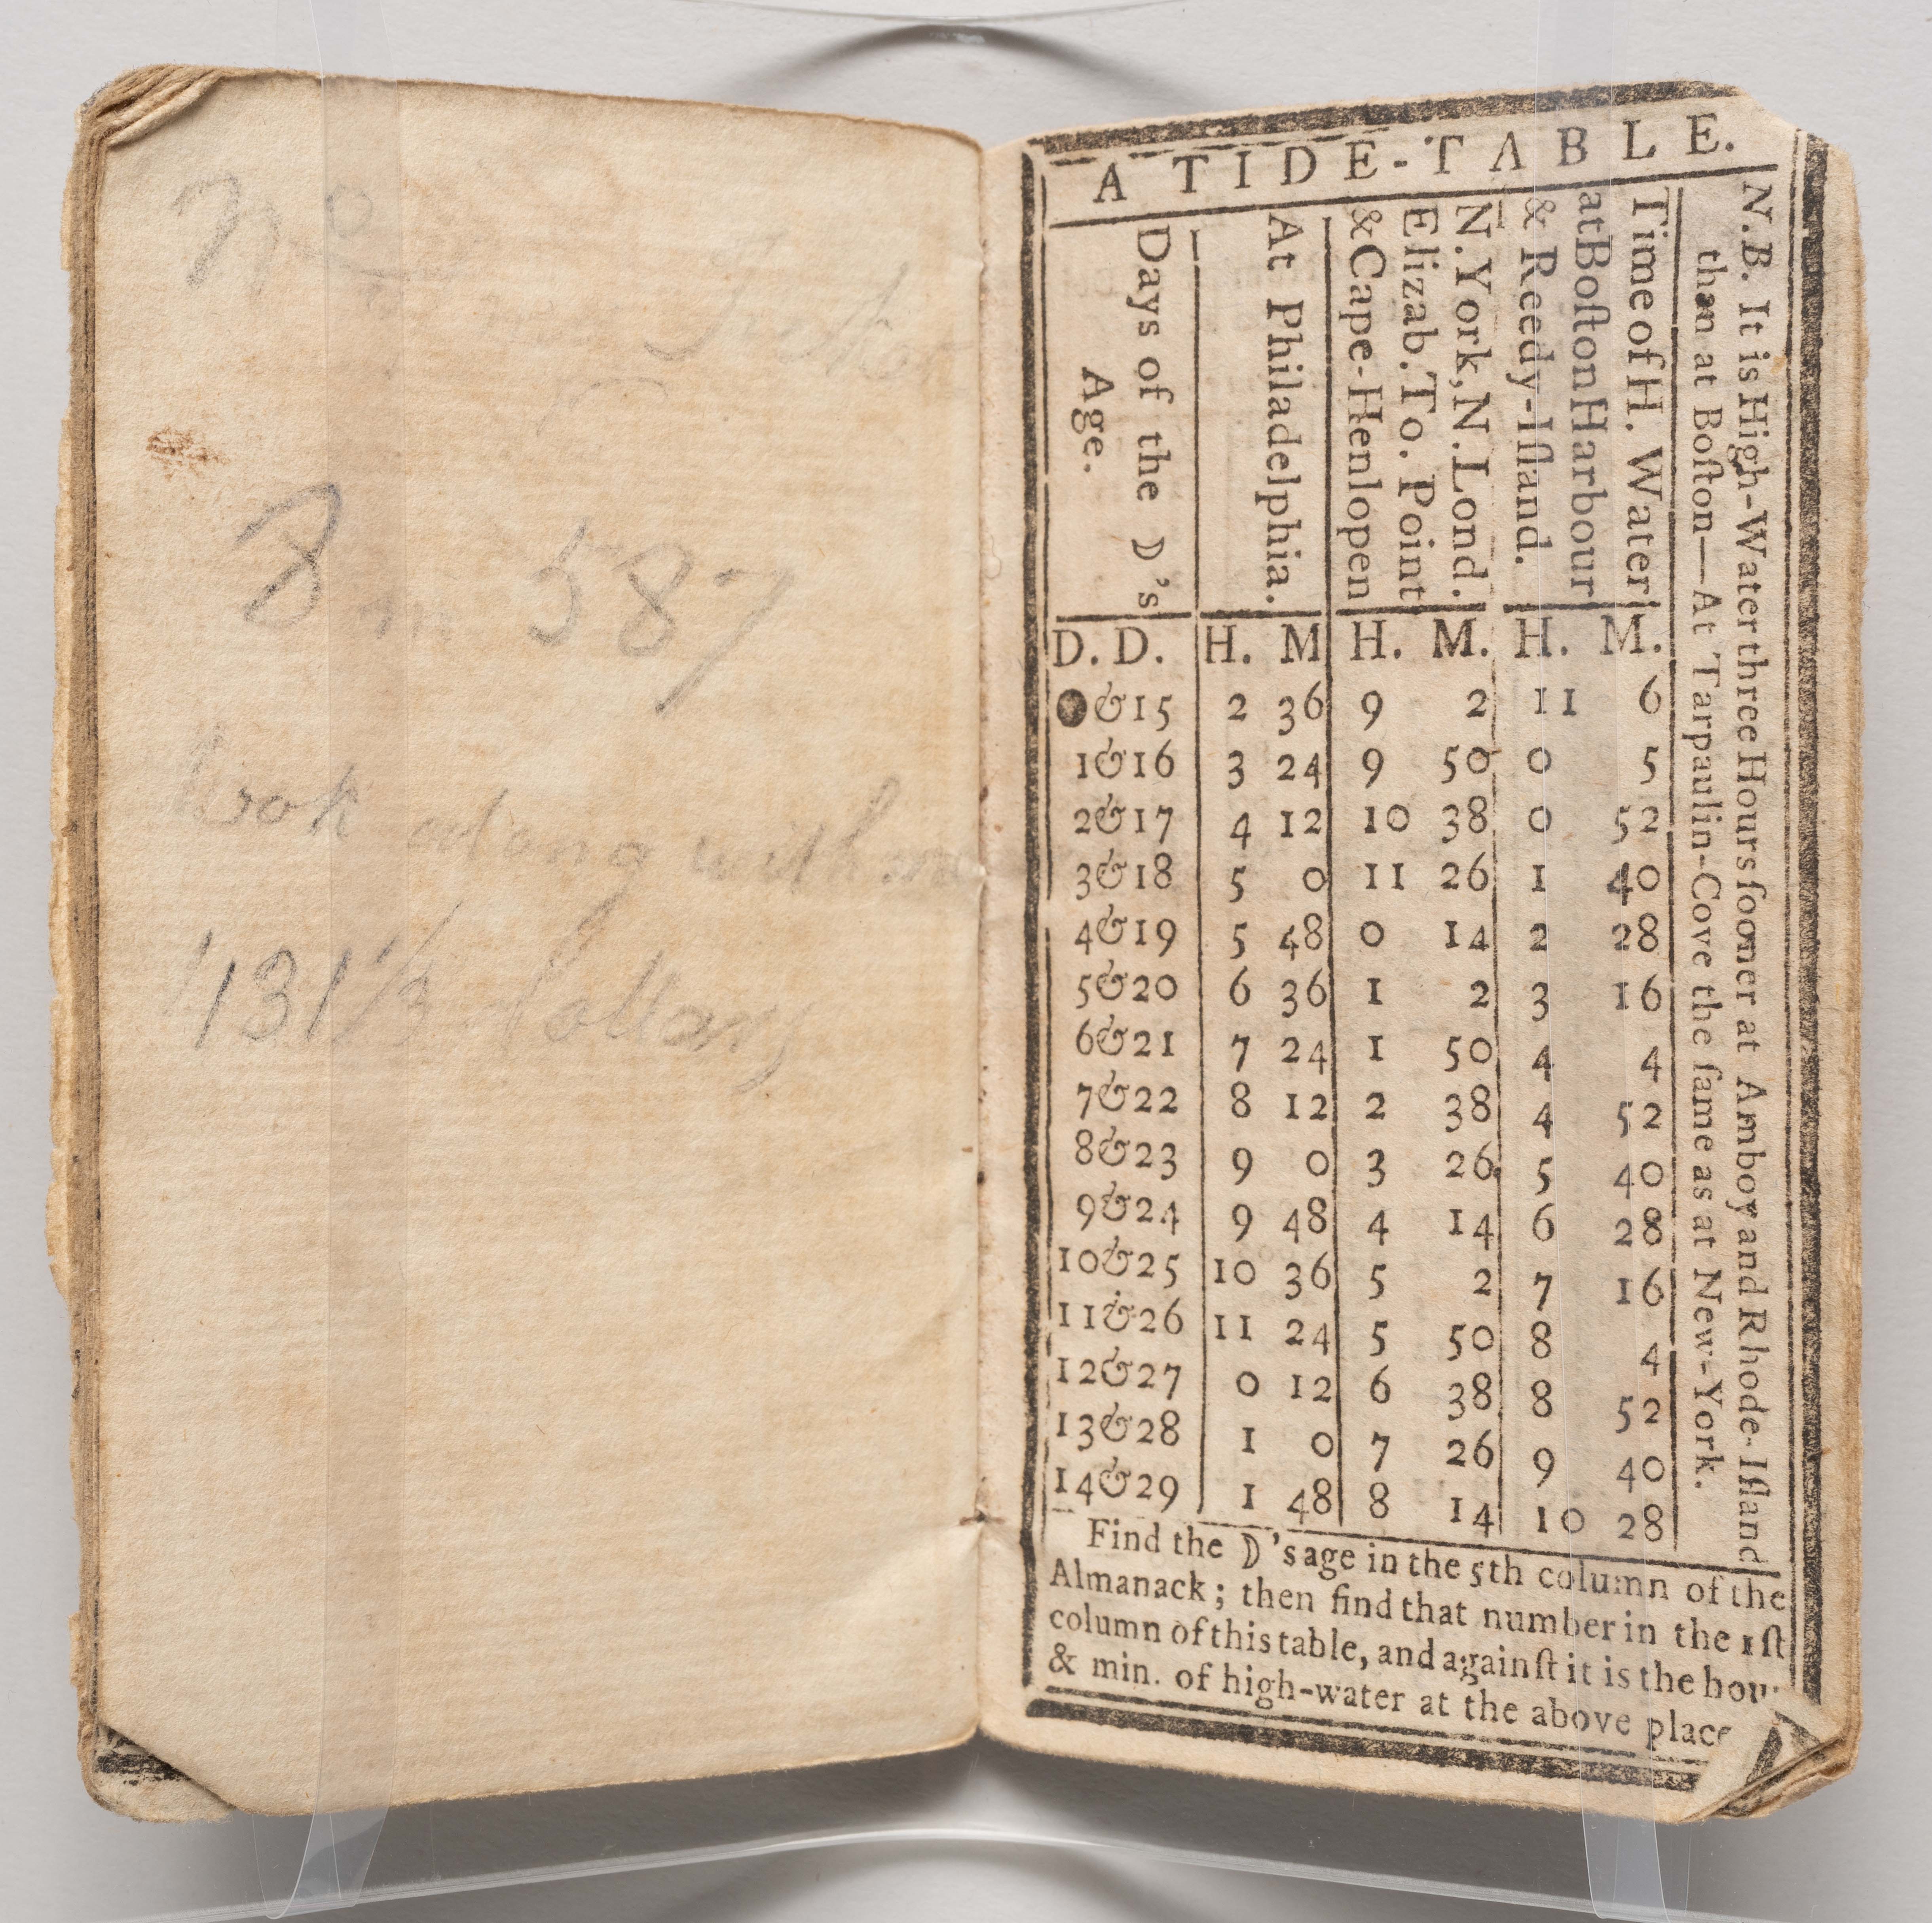 No
587
took along with me
431⅓ dollars
A TIDE-TABLE.
Days of the ☽'s
Age.
At Philadelphia.
N.York, N.Lond.
Elizab.To. Point
&Cape-Henlopen
Time of H. Water
at Boſton Harbour
& Reedy-Iſland.
N.B. It is High-Water three Hours ſooner at Amboy and Rhode-Iſland
than at Boſton—At Tarpaulin-Cove the ſame as at New-York.
D. D. H. M H. M. H. M.
●&15 2 36 9 2 11 6
1&16 3 24 9 50 0 5
2&17 4 12 10 38 0 52
3&18 5 0 11 26 1 40
4&19 5 48 0 14 2 28
5&20 6 36 1 2 3 16
6&21 7 24 1 50 4 4
7&22 8 12 2 38 4 52
8&23 9 0 3 26 5 40
9&24 9 48 4 14 6 28
10&25 10 36 5 2 7 16
11&26 11 24 5 50 8 4
12&27 0 12 6 38 8 52
13&28 1 0 7 26 9 40
14&29 1 48 8 14 10 28
Find the ☽'s age in the 5th column of the
Almanack; then find that number in the 1ſt
column of this table, and againſt it is the hou
& min. of high-water at the above place